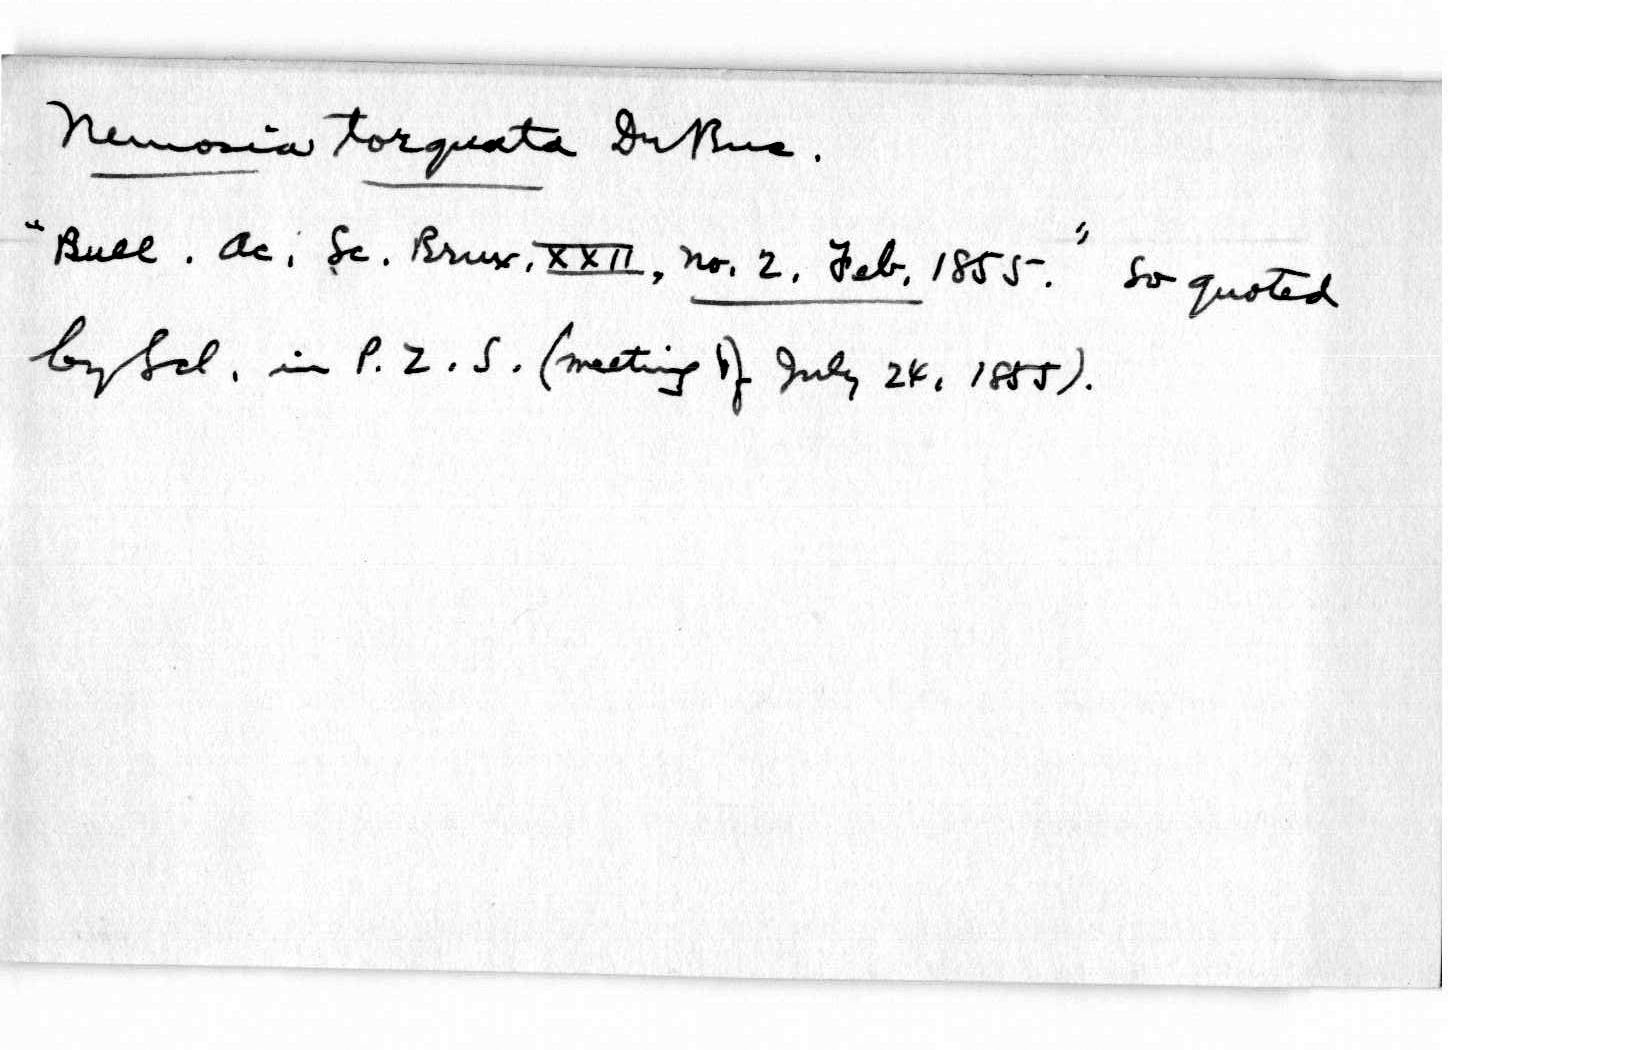 Nemosia torquata Du Bus.
"Bull. Ac. Sc. Brux. XXII, no. 2, Feb. 1855." So quoted
by Scl. in P. Z. S. (meeting of July 24, 1855).